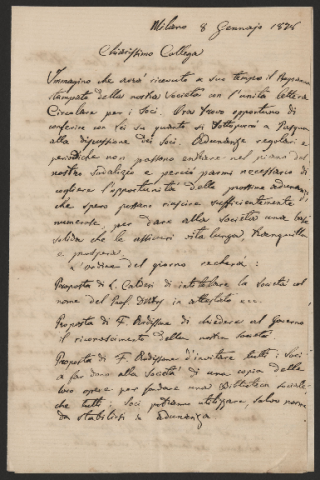 Milano 8 Gennajo 1876
Chiarissimo Collega
Immagino che avrà ricevuto a suo tempo il Programma
stampato della nostra Società con l'unita lettera
Circolare per i Soci. Ora trovo opportuno di
conferire con lei su quanto si sottoporrà a Pasqua
alla discussione dei Soci. Adunanze regolari e
periodiche non possono entrare nel piano del
nostro sodalizio e perciò parmi necessario di
cogliere l'opportunità della prossima adunanza,
che spero possano riescire sufficientemente
numerose, per dare alla Società una base
solida che le assicuri vita lunga, tranquilla
e prospera.
L'ordine del giorno recherà:
Proposta di intitolare la Società col
nome del Prof. in attestato
Proposta di F. Ardissone di chiedere al Governo
il riconoscimento della nostra Società
Proposta di F. Ardissone d'invitare tutti i Soci
a far dono alla Società di una copia delle
loro opere per fondare una Biblioteca sociale
che tutti i Soci potranno utilizzare, salvo norme
da stabilirsi in adunanza.